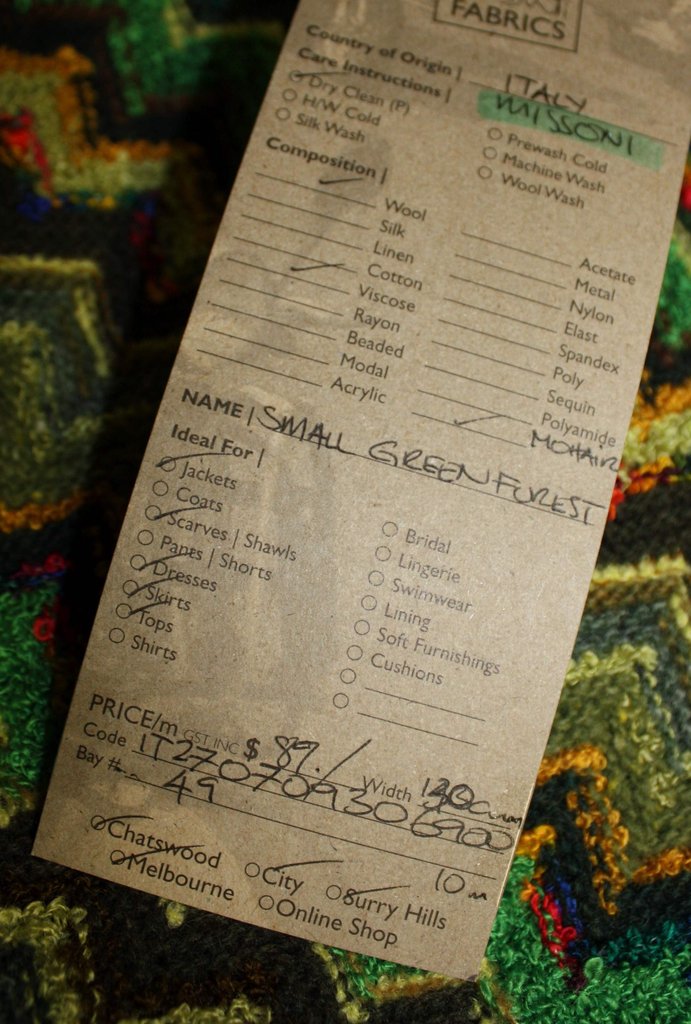 FABRICS
Country of Origin | ITALY
Care Instructions | MISSONI
Dry Clean (P)
H/W Cold
Silk Wash
Prewash Cold
Machine Wash
Wool Wash
Composition |
Wool
Silk
Linen
Cotton
Viscose
Rayon
Beaded
Modal
Acrylic
Acetate
Metal
Nylon
Elast
Spandex
Poly
Sequin
Polyamide
MOHAIR
NAME | SMALL GREEN FOREST
Ideal For |
Jackets
Coats
Scarves | Shawls
Pants | Shorts
Dresses
Skirts
Tops
Shirts
Bridal
Lingerie
Swimwear
Lining
Soft Furnishings
Cushions
PRICE/m GST INC $ 89./ Width 130cm
Code IT270709306900
Bay #. 49
10m
Chatswood City Surry Hills
Melbourne Online Shop